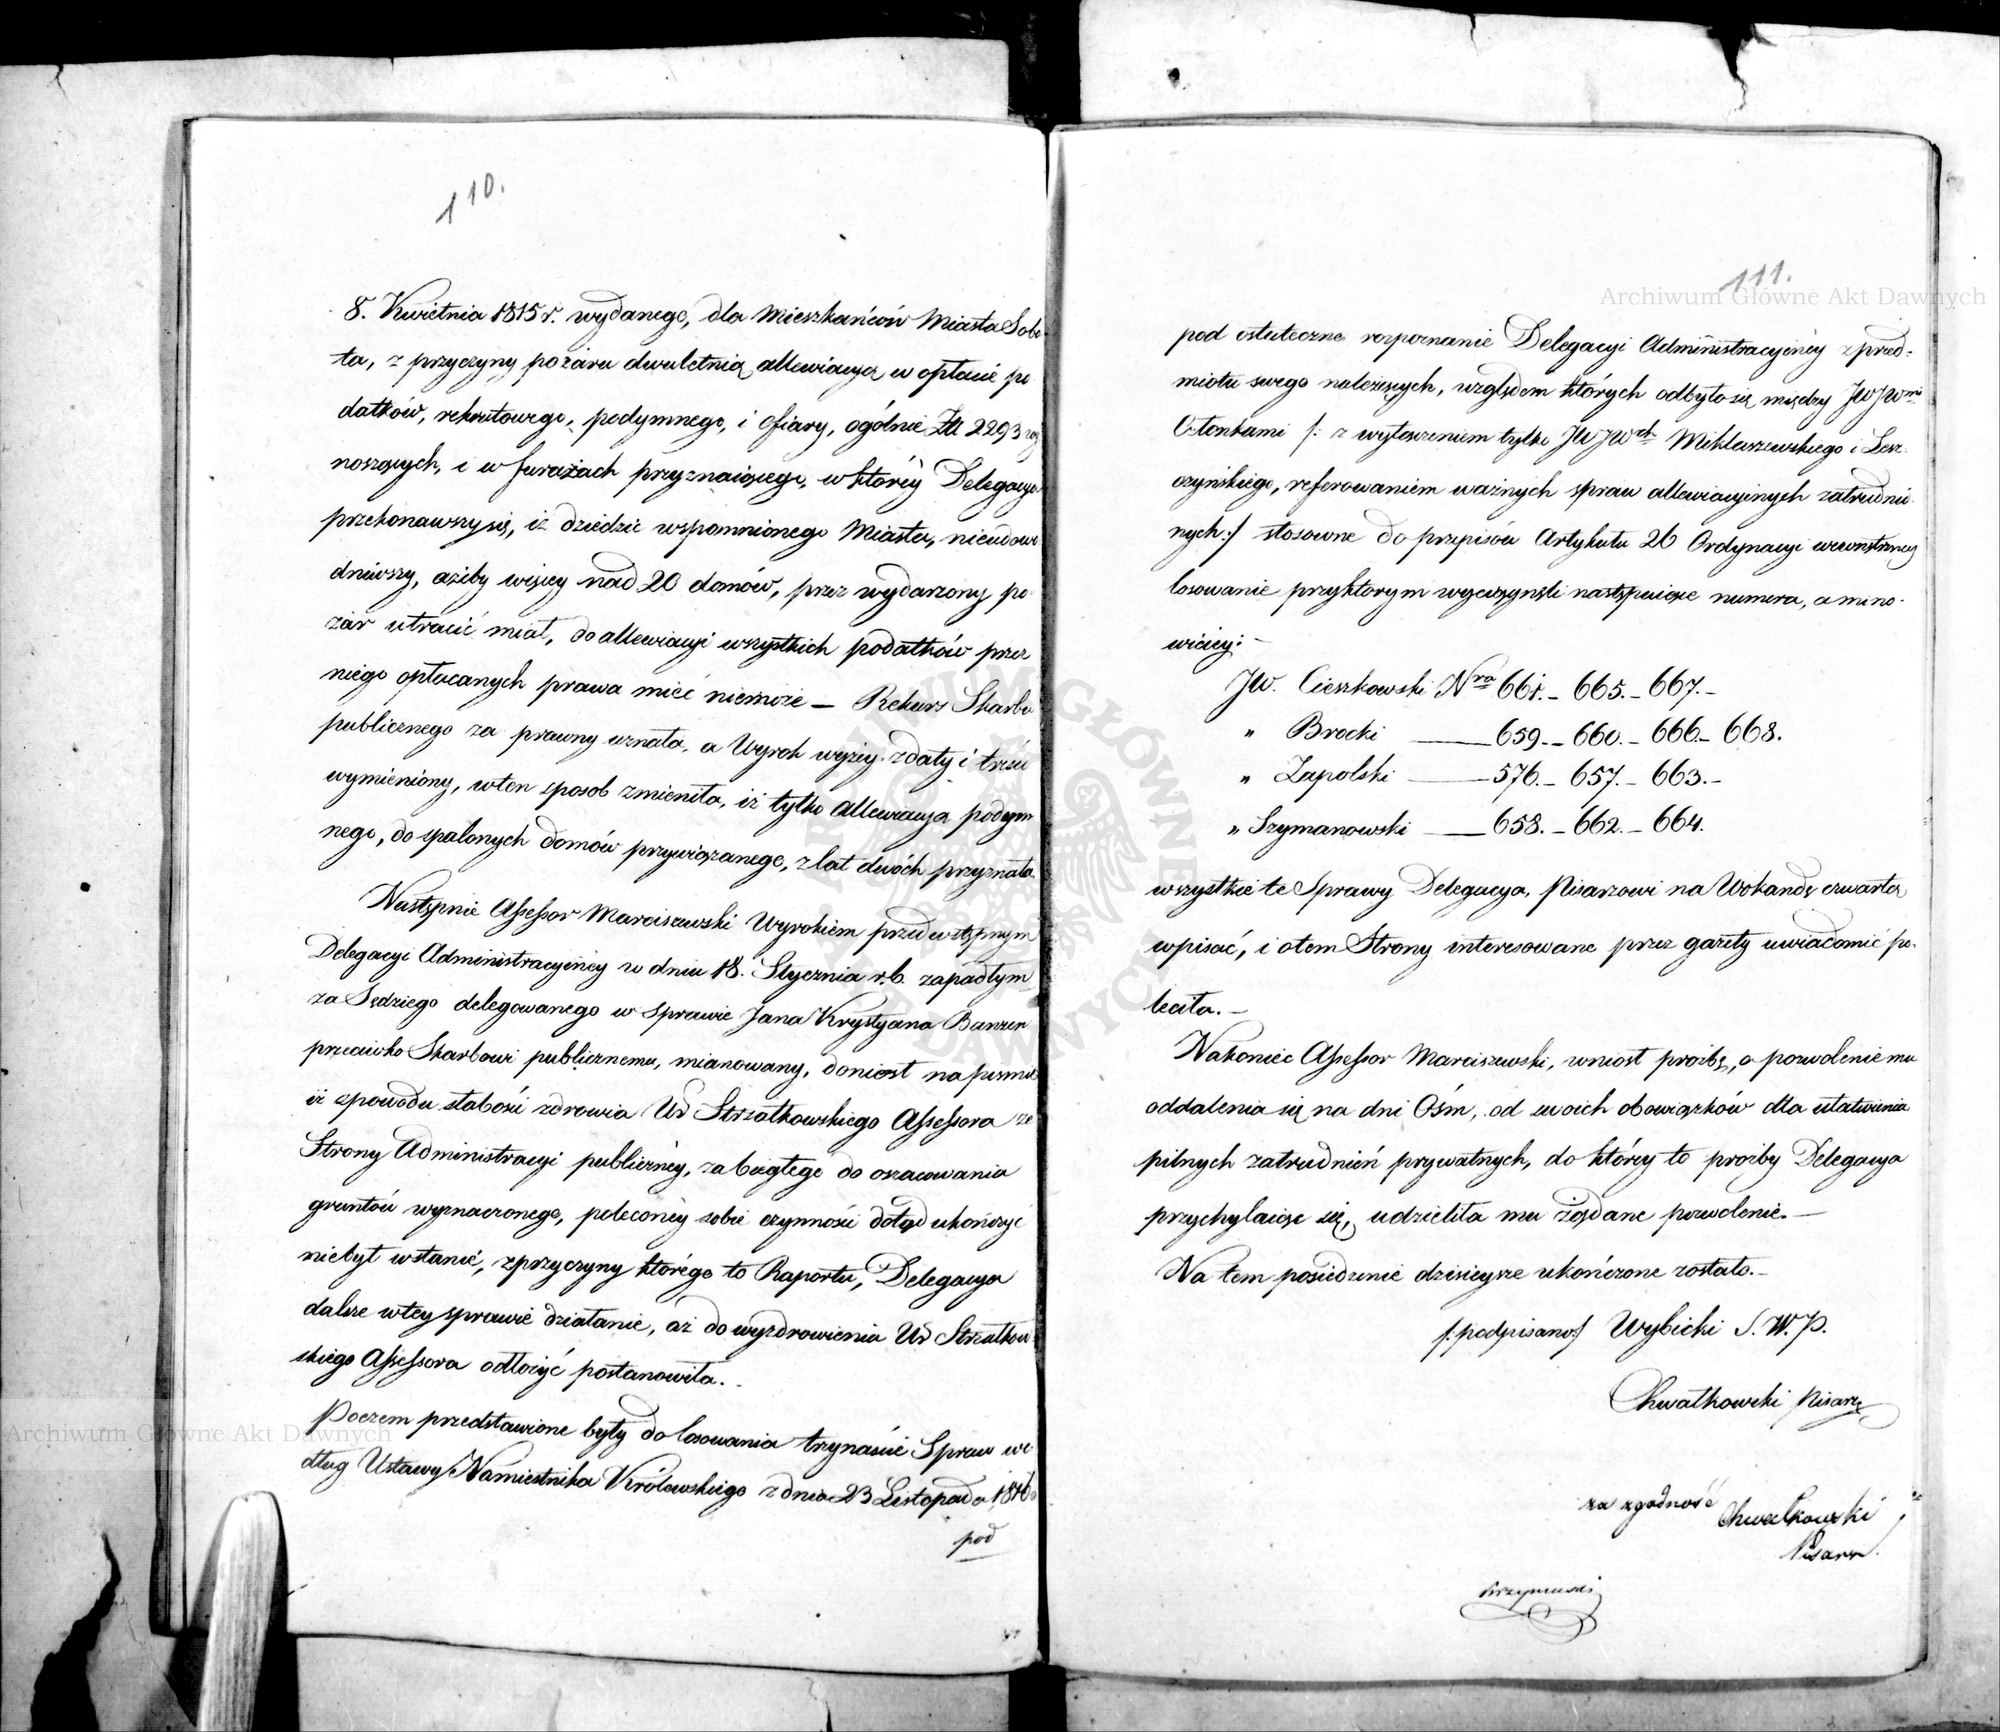 110.
8. Kwietnia 1815 r. wydanego, dla Mieszkańców Miasta Sobo-
ta, z przyczyny pożaru dwuletnią allewiacyą w opłacie po
datków, rekrutowego, podymnego, i ofiary, ogólnie Zł 2293 wy
noszących, i w furażach przyznaiącego, w którey Delegacya
przekonawszy się, iż dziedzic wspomnionego Miasta, nieudowo
dniwszy, ażeby więcey nad 20 domów, przez wydarzony po-
żar utracić miał, do allewiacyi wszystkich podatków przez
niego opłacanych prawa mieć niemoże — Rekurs Skarbu
publicznego za prawny uznała, a Wyrok wyżey z daty i treści
wymieniony, w ten sposob zmieniła, iż tylko allewiacya podym
nego, do spalonych domów przywiązanego, z lat dwóch przyznała.
Następnie Assessor Marciszewski Wyrokiem przedwstępnym
Delegacyi Administracyiney w dniu 18. Stycznia r. b. zapadłym
za Sędziego delegowanego w sprawie Jana Krystyana Banzer
przeciwko Skarbowi publicznemu, mianowany, doniosł na piśmie
iż z powodu słabości zdrowia Ur Strzałkowskiego Assessora ze
Strony Administracyi publiczney, za biegłego do oszacowania
gruntów wyznaczonego, poleconey sobie czynności dotąd ukończyć
niebył wstanie, z przyczyny którego to Raportu, Delegacya
dalsze w tey sprawie działanie, aż do wyzdrowienia Ur Strzałkow
skiego Assessora odłożyć postanowiła. –
Poczem przedstawione były do losowania trzynaście Spraw we-
dług Ustawy Namiestnika Królewskiego z dnia 23 Listopada 1816
pod
111.
pod ostateczne rozpoznanie Delegacyi Administracyiney z przed-
miotu swego należących, względem których odbyło się między JW JWmi
Członkami /: z wyłączeniem tylko JW JWch Miklaszewskiego i Lesz-
czyńskiego, referowaniem ważnych spraw allewiacyinych zatrudnio-
nych :/ stosowne do przepisów Artykułu 26 Ordynacyi wewnętrzney
losowanie przy którym wyciągnęli następuiące numera, a miano-
wiciey: –
JW. Cieszkowski Nra 661. – 665. – 667. –
" Brocki —— 659. – 660. – 666. – 668.
" Zapolski —— 576. – 657. – 663. –
" Szymanowski —— 658. – 662. – 664.
wszystkie te Sprawy Delegacya, Pisarzowi na Wokandę czwartą
wpisać, i otem Strony interesowane przez gazety uwiadomić po-
leciła. –
Nakoniec Assessor Marciszewski, wniosł prośbę, o pozwolenie mu
oddalenia się na dni Ośm, od swoich obowiązków dla ułatwienia
pilnych zatrudnień prywatnych, do którey to prośby Delegacya
przychylaiąc się, udzieliła mu żądane pozwolenie. –
Na tem posiedzenie dzisieysze ukończone zostało. –
/:podpisano:/ Wybicki S. W. P.
Chwałkowski Pisarz
za zgodność Chwałkowski
Pisarz.
Archiwum Główne Akt Dawnych
Archiwum Główne Akt Dawnych
ARCHIWUM GŁÓWNE AKT DAWNYCH